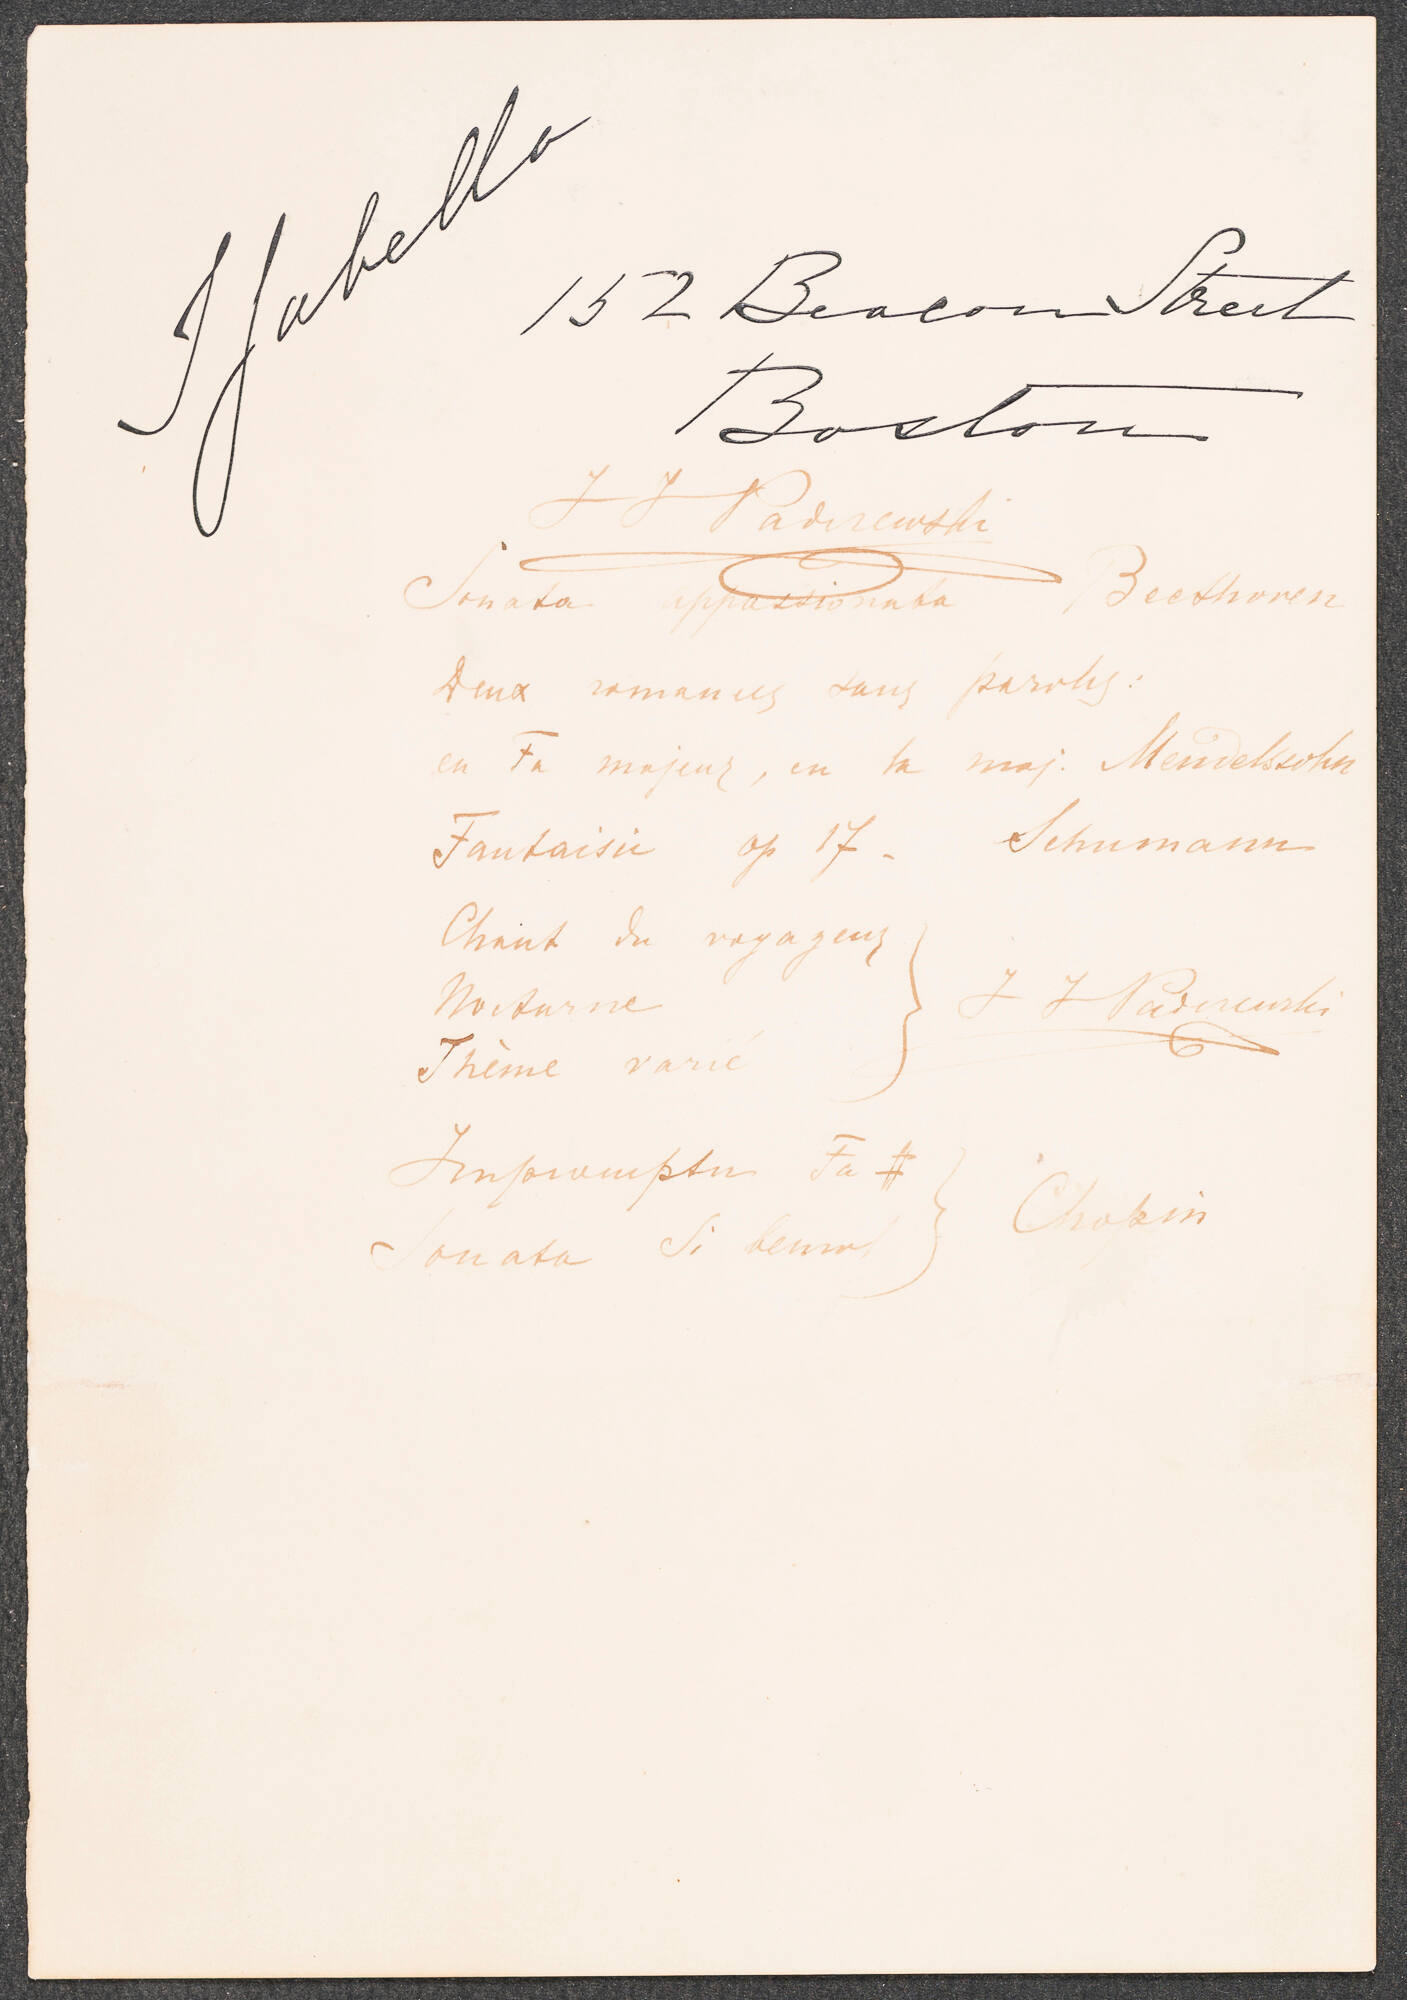 Isabella
152 Beacon Street
Boston
I J Paderewski
Sonata appassionata Beethoven
Deux romances sans paroles:
en Fa majeur, en la maj. Mendelssohn
Fantaisie op 17 - Schumann
Chant du voyageur
Nocturne
Thème varié
I J Paderewski
Impromptu Fa #
Sonata Si bemol
Chopin